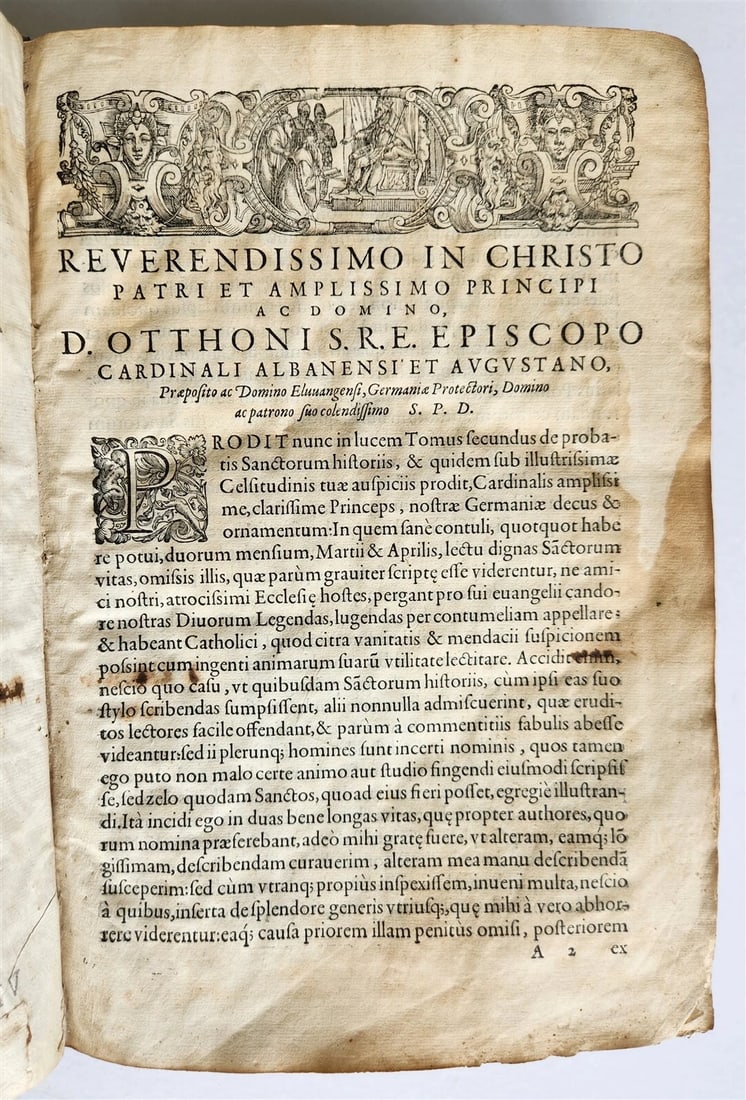 REVERENDISSIMO IN CHRISTO
PATRI ET AMPLISSIMO PRINCIPI
AC DOMINO,
D. OTTHONI S.R.E. EPISCOPO
CARDINALI ALBANENSI ET AVGVSTANO,
Præposito ac Domino Eluuangensi, Germaniæ Protectori, Domino
ac patrono suo colendissimo S. P. D.
PRODIT nunc in lucem Tomus secundus de proba-
tis Sanctorum historiis, & quidem sub illustrissimæ
Celsitudinis tuæ auspiciis prodit, Cardinalis amplissi
me, clarissime Princeps, nostræ Germaniæ decus &
ornamentum: In quem sanè contuli, quotquot habe
re potui, duorum mensium, Martii & Aprilis, lectu dignas Sāctorum
vitas, omissis illis, quæ parùm grauiter scriptę esse viderentur, ne ami-
ci nostri, atrocissimi Ecclesię hostes, pergant pro sui euangelii cando-
re nostras Diuorum Legendas, lugendas per contumeliam appellare:
& habeant Catholici, quod citra vanitatis & mendacii suspicionem
possint cum ingenti animarum suarū vtilitate lectitare. Accidit enim,
nescio quo casu, vt quibusdam Sāctorum historiis, cùm ipsi eas suo
stylo scribendas sumpsissent, alii nonnulla admiscuerint, quæ erudi-
tos lectores facile offendant, & parùm à commentitiis fabulis abesse
videantur: sed ii plerunq; homines sunt incerti nominis, quos tamen
ego puto non malo certe animo aut studio fingendi eiusmodi scripsis
se, sed zelo quodam Sanctos, quoad eius fieri posset, egregiè illustran-
di. Ità incidi ego in duas bene longas vitas, quę propter authores, quo
rum nomina præferebant, adeò mihi gratę fuere, vt alteram, eamq; lō
gissimam, describendam curauerim, alteram mea manu describendā
susceperim: sed cùm vtranq; propiùs inspexissem, inueni multa, nescio
à quibus, inserta de splendore generis vtriusq;, quę mihi à vero abhor-
rere viderentur: eaq; causa priorem illam penitùs omisi, posteriorem
A 2 ex